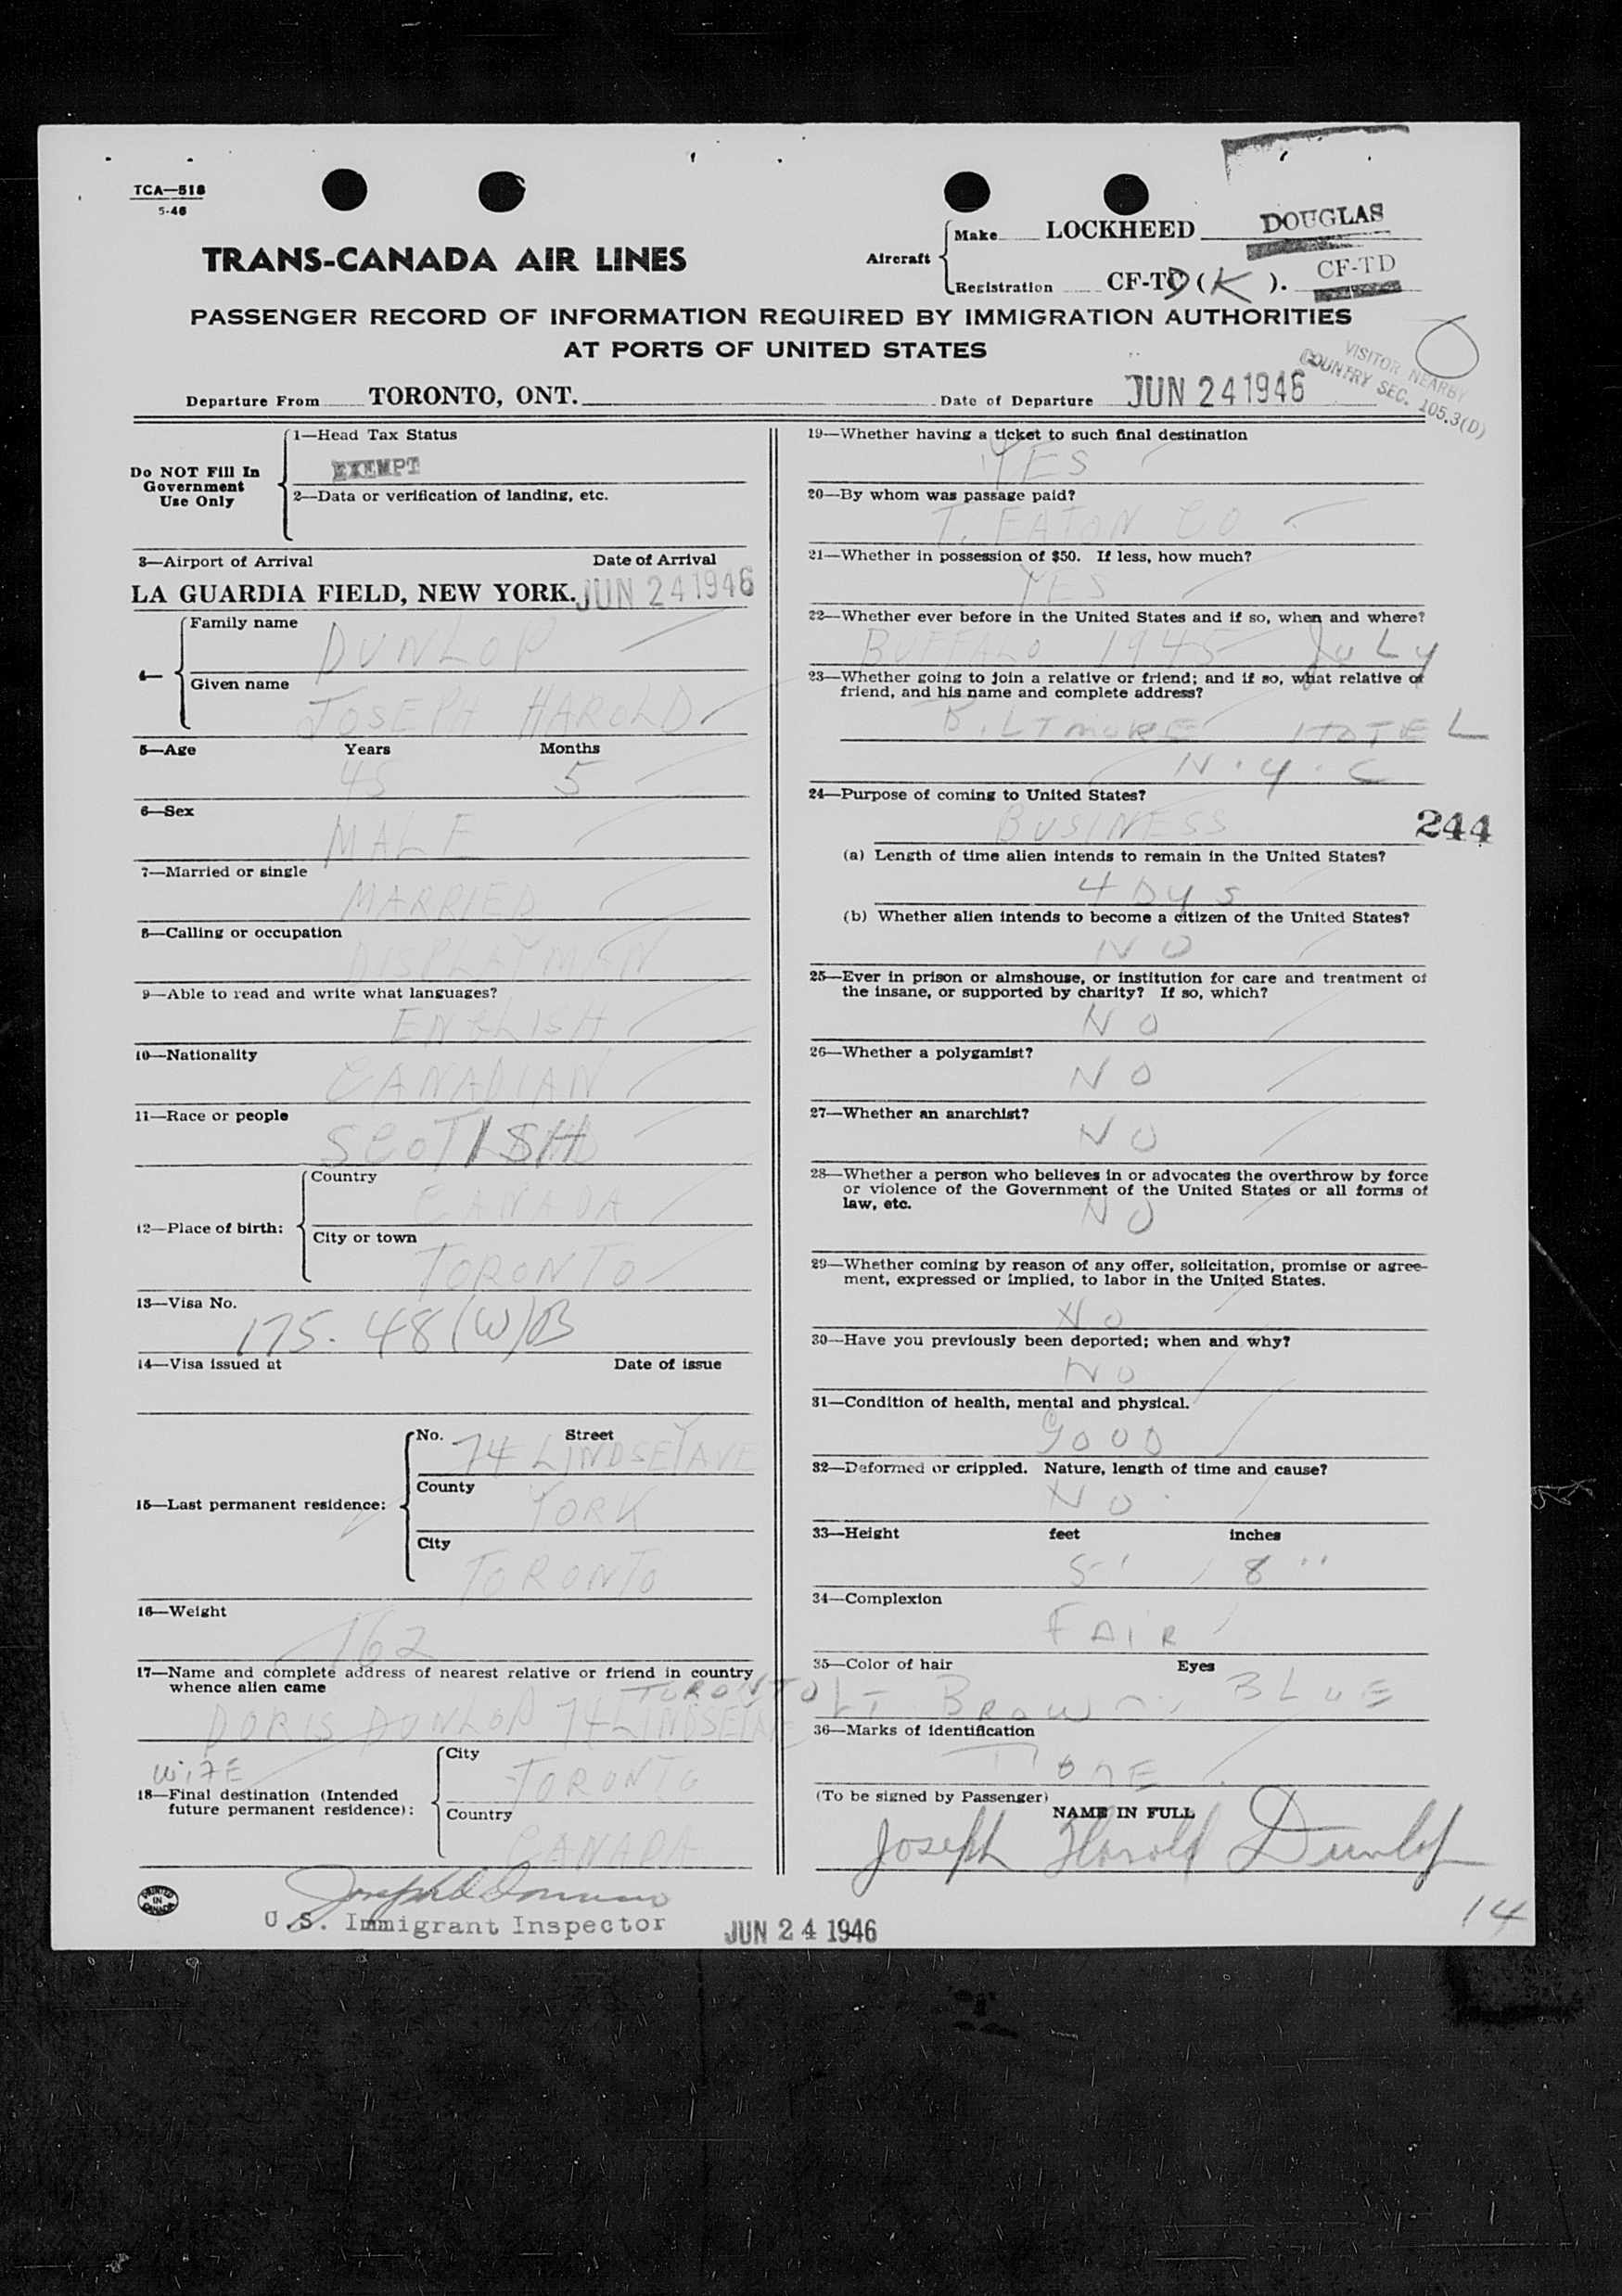 TCA—518
5-46
TRANS-CANADA AIR LINES
Aircraft
Make LOCKHEED DOUGLAS
Registration CF-TD (K ). CF-TD
PASSENGER RECORD OF INFORMATION REQUIRED BY IMMIGRATION AUTHORITIES
AT PORTS OF UNITED STATES
VISITOR NEARBY
COUNTRY SEC. 105.3(D)
Departure From TORONTO, ONT. Date of Departure JUN 24 1946
Do NOT Fill In
Government
Use Only
1—Head Tax Status
EXEMPT
2—Data or verification of landing, etc.
3—Airport of Arrival Date of Arrival
LA GUARDIA FIELD, NEW YORK. JUN 24 1946
4—
Family name
DUNLOP
Given name
JOSEPH HAROLD
5—Age Years Months
45 5
6—Sex
MALE
7—Married or single
MARRIED
8—Calling or occupation
DISPLAY MAN
9—Able to read and write what languages?
ENGLISH
10—Nationality
CANADIAN
11—Race or people
SCOTISH
12—Place of birth:
Country
CANADA
City or town
TORONTO
13—Visa No.
175. 48 (W)B
14—Visa issued at Date of issue
15—Last permanent residence:
No. Street
74 LINDSEY AVE
County
YORK
City
TORONTO
16—Weight
162
17—Name and complete address of nearest relative or friend in country
whence alien came
TORONTO
DORIS DUNLOP 74 LINDSEY AVE
WIFE
18—Final destination (Intended
future permanent residence):
City
TORONTO
Country
CANADA
U.S. Immigrant Inspector
JUN 24 1946
19—Whether having a ticket to such final destination
YES
20—By whom was passage paid?
T. EATON CO
21—Whether in possession of $50. If less, how much?
YES
22—Whether ever before in the United States and if so, when and where?
BUFFALO 1945 JULY
23—Whether going to join a relative or friend; and if so, what relative or
friend, and his name and complete address?
BILTMORE HOTEL
N.Y.C
24—Purpose of coming to United States?
BUSINESS
244
(a) Length of time alien intends to remain in the United States?
4 DYS
(b) Whether alien intends to become a citizen of the United States?
NO
25—Ever in prison or almshouse, or institution for care and treatment of
the insane, or supported by charity? If so, which?
NO
26—Whether a polygamist?
NO
27—Whether an anarchist?
NO
28—Whether a person who believes in or advocates the overthrow by force
or violence of the Government of the United States or all forms of
law, etc.
NO
29—Whether coming by reason of any offer, solicitation, promise or agree-
ment, expressed or implied, to labor in the United States.
NO
30—Have you previously been deported; when and why?
NO
31—Condition of health, mental and physical.
GOOD
32—Deformed or crippled. Nature, length of time and cause?
NO
33—Height feet inches
5' 8"
34—Complexion
FAIR
35—Color of hair Eyes
LT BROWN BLUE
36—Marks of identification
NONE
(To be signed by Passenger)
NAME IN FULL
Joseph Harold Dunlop
PRINTED
IN
CANADA
14